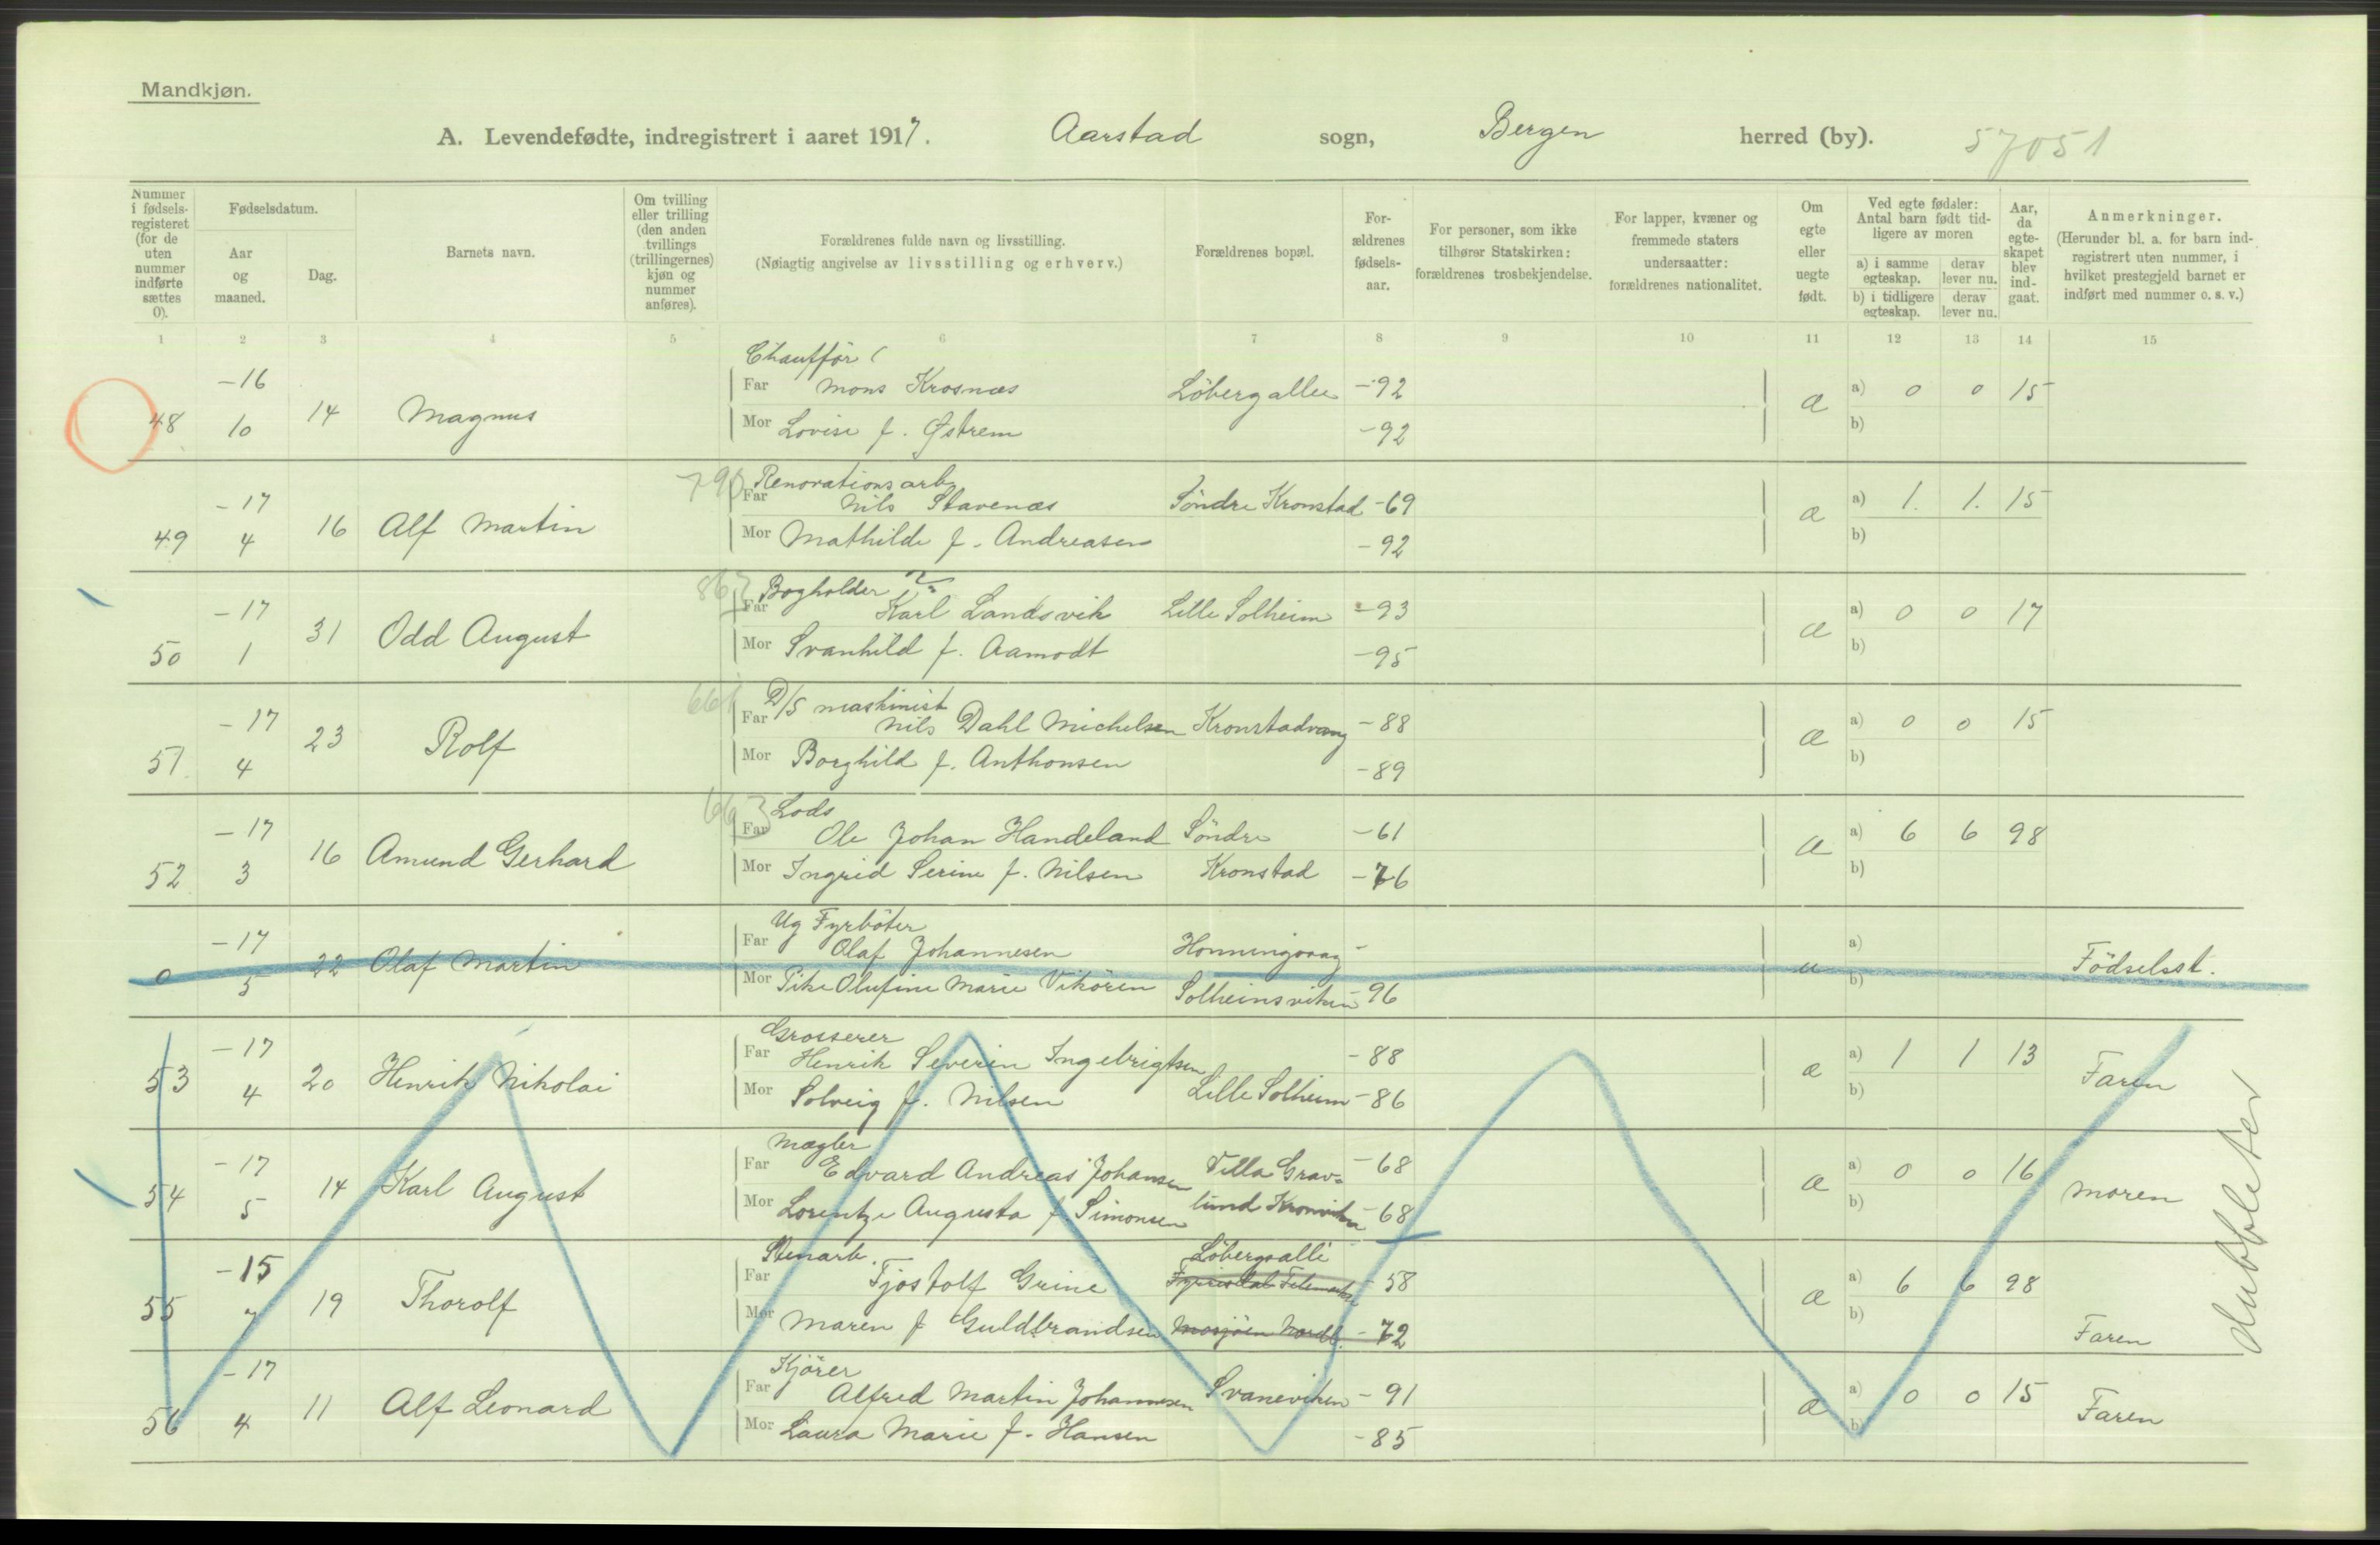 Mandkjøn.
A. Levendefødte, indregistrert i aaret 1917. Aarstad sogn, Bergen herred (by). 57051
Nummer i fødsels-registeret (for de uten nummer indførte sættes 0).
Fødselsdatum.
Aar og maaned.
Dag.
Barnets navn.
Om tvilling eller trilling (den anden tvillings (trillingernes) kjøn og nummer anføres).
Forældrenes fulde navn og livsstilling.
(Nøiagtig angivelse av livsstilling og erhverv.)
Forældrenes bopæl.
For-ældrenes fødsels-aar.
For personer, som ikke tilhører Statskirken: forældrenes trosbekjendelse.
For lapper, kvæner og fremmede staters undersaatter: forældrenes nationalitet.
Om egte eller uegte født.
Ved egte fødsler: Antal barn født tid-ligere av moren
a) i samme egteskap. derav lever nu.
b) i tidligere egteskap. derav lever nu.
Aar, da egte-skapet blev ind-gaat.
Anmerkninger.
(Herunder bl. a. for barn ind-registrert uten nummer, i hvilket prestegjeld barnet er indført med nummer o. s. v.)
1 2 3 4 5 6 7 8 9 10 11 12 13 14 15
Chauffør
48 -16 10 14 Magnus Far Mons Krosnæs Löbergallee -92 æ a) 0 0 15
Mor Lovise f. Østrem -92 b)
790 Renovationsarb.
49 -17 4 16 Alf Martin Far Nils Stavenæs Söndre Kronstad -69 æ a) 1. 1. 15
Mor Mathilde f. Andreasen -92 b)
867 Bogholder
50 -17 1 31 Odd August Far Karl Landsvik Lille Solheim -93 æ a) 0 0 17
Mor Svanhild f. Aamodt -95 b)
661 D/S maskinist
51. -17 4 23 Rolf Far Nils Dahl Michelsen Kronstadvang -88 æ a) 0 0 15
Mor Borghild f. Anthonsen -89 b)
663 Lods
52 -17 3 16 Amund Gerhard Far Ole Johan Handeland Söndre -61 æ a) 6 6 98
Mor Ingrid Serine f. Nilsen Kronstad -76 b)
Ug Fyrböter
0 -17 5 22 Olaf Martin Far Olaf Johannesen Honningsvaag - u a) Födselsst.
Mor Pike Olufine Marie Vikören Solheimsviken -96 b)
Grosserer
53 -17 4 20 Henrik Nikolai Far Henrik Severin Ingebrigtsen -88 æ a) 1 1 13 Faren
Mor Solveig f. Nilsen Lille Solheim -86 b)
Mægler
54 -17 5 14 Karl August Far Edvard Andreas Johansen Villa Grav= -68 æ a) 0 0 16 Moren
Mor Lorentze Augusta f. Simonsen lund Kronviken -68 b)
Stenarb. Löbergsalle
55 -15 7 19 Thorolf Far Tjostolf Grine Fyrrisdal Telemarken -58 æ a) 6 6 98
Mor Maren f Guldbrandsen Mosjöen Nordl. -72 b) Faren
Kjörer
56 -17 4 11 Alf Leonard Far Alfred Martin Johannesen Svaneviken -91 æ a) 0 0 15 Faren
Mor Laura Marie f. Hansen -85 b)
dubbleter